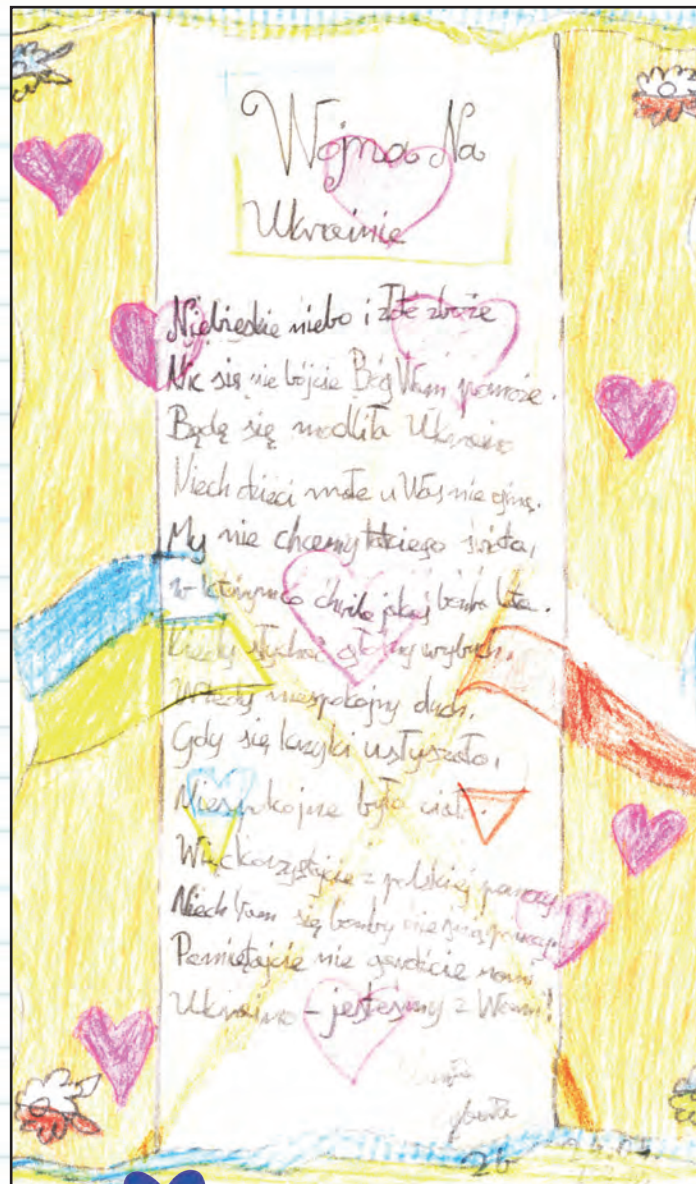 Wojna Na
Ukrainie
Niebieskie niebo i złote zboże
Nic się nie bójcie Bóg Wam pomoże.
Będę się modliła Ukraino
Niech dzieci małe u Was nie giną.
My nie chcemy takiego świata,
w którym co chwilę jakaś bomba lata.
Kiedy słychać głośny wybuch,
Wtedy niespokojny duch.
Gdy się krzyki usłyszało,
Niespokojne było ciało.
Więc korzystajcie z polskiej pomocy,
Niech Wam się bomby nie śnią po nocy.
Pamiętajcie nie gardźcie nami
Ukraino – jesteśmy z Wami!
2b